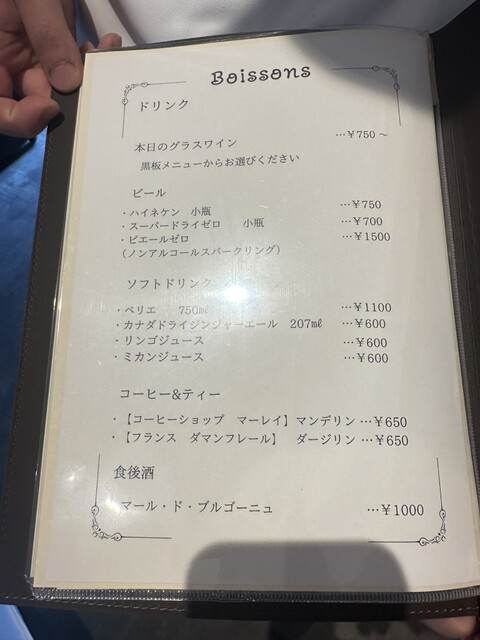 Boissons
ドリンク
本日のグラスワイン …￥750～
黒板メニューからお選びください
ビール
・ハイネケン 小瓶 …￥750
・スーパードライゼロ 小瓶 …￥700
・ピエールゼロ …￥1500
（ノンアルコールスパークリング）
ソフトドリンク
・ペリエ 750㎖ …￥1100
・カナダドライジンジャーエール 207㎖ …￥600
・リンゴジュース …￥600
・ミカンジュース …￥600
コーヒー&ティー
・【コーヒーショップ マーレイ】マンデリン …￥650
・【フランス ダマンフレール】 ダージリン …￥650
食後酒
マール・ド・ブルゴーニュ …￥1000